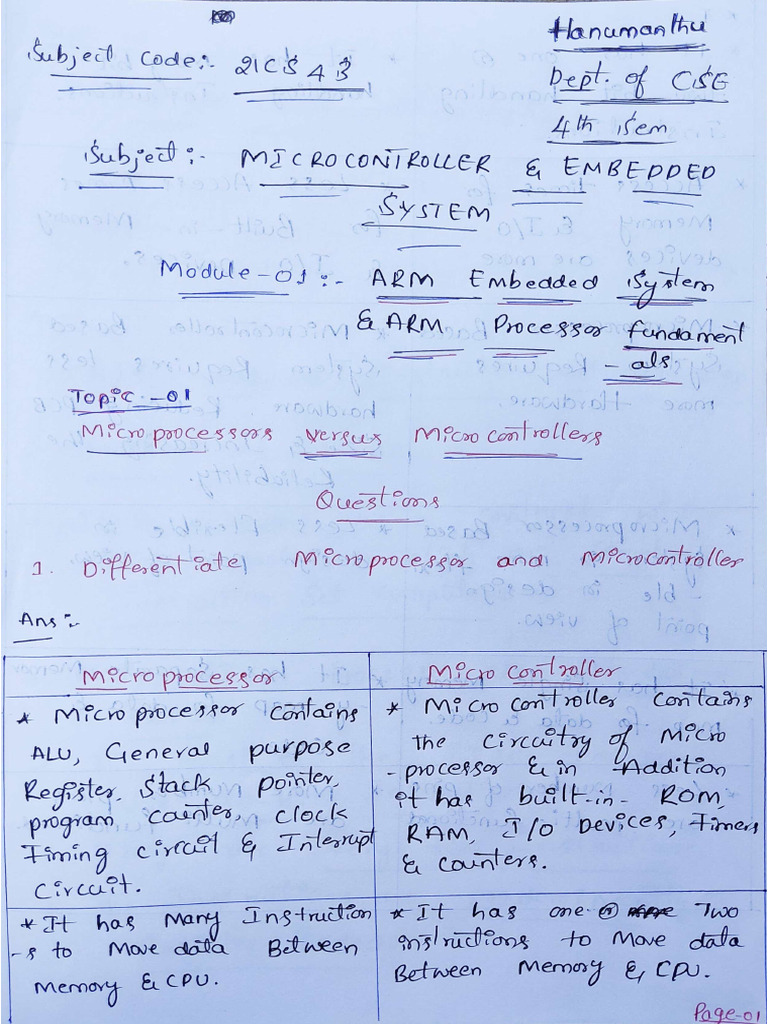 Hanumanthu
Subject Code:- 21CS43
Dept. of CSE
4th Sem
Subject:- MICROCONTROLLER & EMBEDDED
SYSTEM
Module-01:- ARM Embedded System
& ARM Processor fundament
-als
Topic-01
Microprocessors versus Microcontrollers
Questions
1. Differentiate Microprocessor and Microcontroller
Ans:-
Microprocessor
* Microprocessor contains
ALU, General purpose
Register, Stack pointer,
program counter, clock
Timing circuit & Interrupt
circuit.
* It has Many Instruction
-s to Move data Between
Memory & CPU.
Micro controller
* Micro controller contains
the circuitry of Micro
-processor & in Addition
it has built-in ROM,
RAM, I/O Devices, Timers
& counters.
* It has one or Two
instructions to Move data
Between Memory & CPU.
Page-01